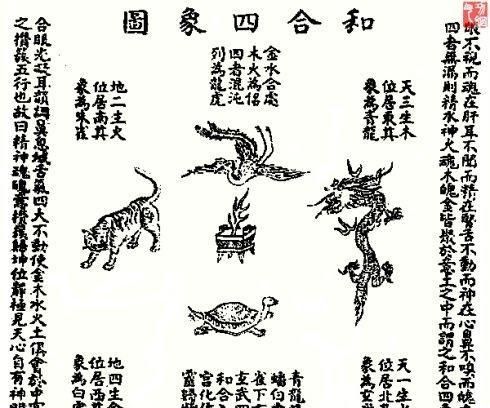 和合四象圖
眼不視而魂在肝耳不聞而精在腎舌不動而神在心鼻不嗅而魄
四者無漏則精水神火魂木魄金皆聚於意土之中而謂之和合四
天三生木
位居東真
象為青龍
金水合處
木火為侶
四者混沌
列為龍虎
地二生火
位居南真
象為朱雀
天一生
位居北
象為玄
青龍
蟠白
雀下
玄武四
和合
宮化作
地四生金
位居西
象為白
合眼光凝耳韻調鼻息緘舌氣四大不動使金木水火土俱會於中
之攢簇五行也故曰精神魂魄意攢簇歸坤位靜極見天心自有神明